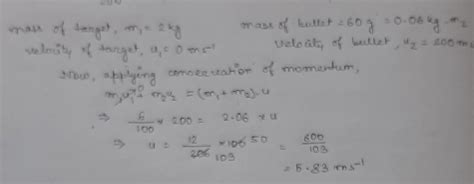 mass of target, m₁ = 2 kg mass of bullet = 60 g = 0.06 kg = m₂
velocity of target, u₁ = 0 ms⁻¹ velocity of bullet, u₂ = 200 m
Now, applying conservation of momentum,
m₁u₁⁰ + m₂u₂ = (m₁ + m₂) . u
⇒ 6/100 × 200 = 2.06 × u
⇒ u = 12/206 103 × 100 50 = 600/103
= 5.83 ms⁻¹